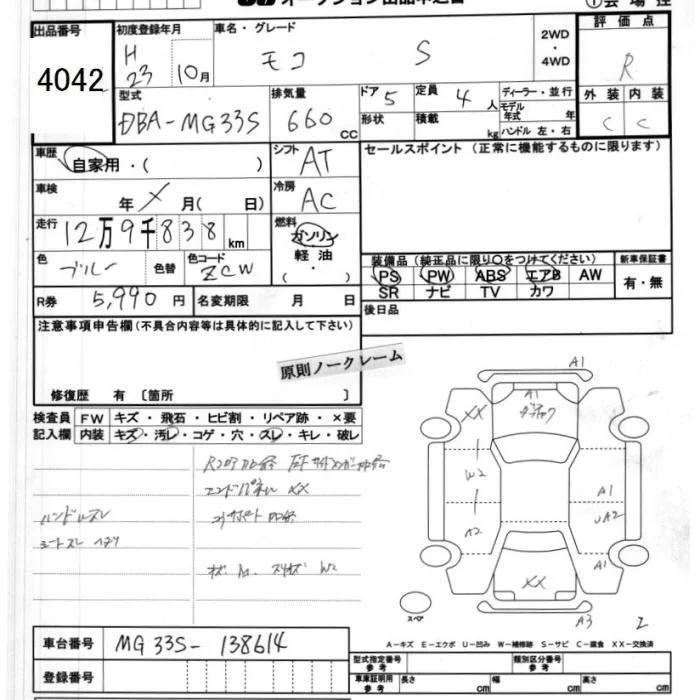 出品番号
4042
初度登録年月
H
23 10月
車名・グレード
モコ S
2WD
・
4WD
評価点
R
外装 内装
C C
型式
DBA-MG33S
排気量
660 cc
ドア 5
定員 4人
形状
積載 kg
ディーラー・並行
モデル
年式 年
ハンドル 左・右
車歴
自家用・( )
シフト AT
車検
年 X 月( 日)
冷房 AC
走行
12万9千838 km
燃料
ガソリン
軽油
( ・ )
色
ブルー
色替
色コード
ZCW
R券 5,990円
名変期限 月 日
セールスポイント(正常に機能するものに限ります)
装備品(純正品に限り○をつけてください)
PS PW ABS エアB AW
SR ナビ TV カワ
新車保証書
有・無
後日品
注意事項申告欄(不具合内容等は具体的に記入して下さい)
原則ノークレーム
修復歴 有 〔箇所 〕
検査員
記入欄
FW キズ・飛石・ヒビ割・リペア跡・×要
内装 キズ・汚レ・コゲ・穴・スレ・キレ・破レ
エンドパネル XX
ハンドルスレ
シートスレ
W2
A1
A1
XX
W2
A2
A1
UA2
A1
XX
A3
スペア
A-キズ E-エクボ U-凹み W-補修跡 S-サビ C-腐食 XX-交換済
車台番号 MG33S-138614
登録番号
型式指定番号
参考
類別区分番号
参考
車庫証明用
参考
長さ cm 幅 cm 高さ cm